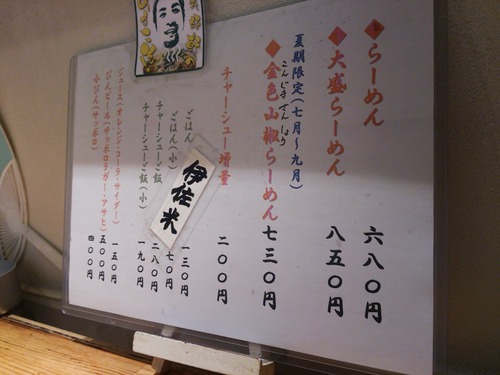 ◆らーめん 六八〇円
◆大盛らーめん 八五〇円
夏期限定(七月～九月)
こんじきさんしょう
◆金色山椒らーめん 七三〇円
チャーシュー増量 二〇〇円
ごはん 一三〇円
ごはん(小) 七〇円
伊佐米
チャーシューご飯 二八〇円
チャーシューご飯(小) 一九〇円
ジュース(オレンジ・コーラ・サイダー) 一五〇円
びんビール(サッポロラガー・アサヒ) 五〇〇円
小びん(サッポロ) 四〇〇円